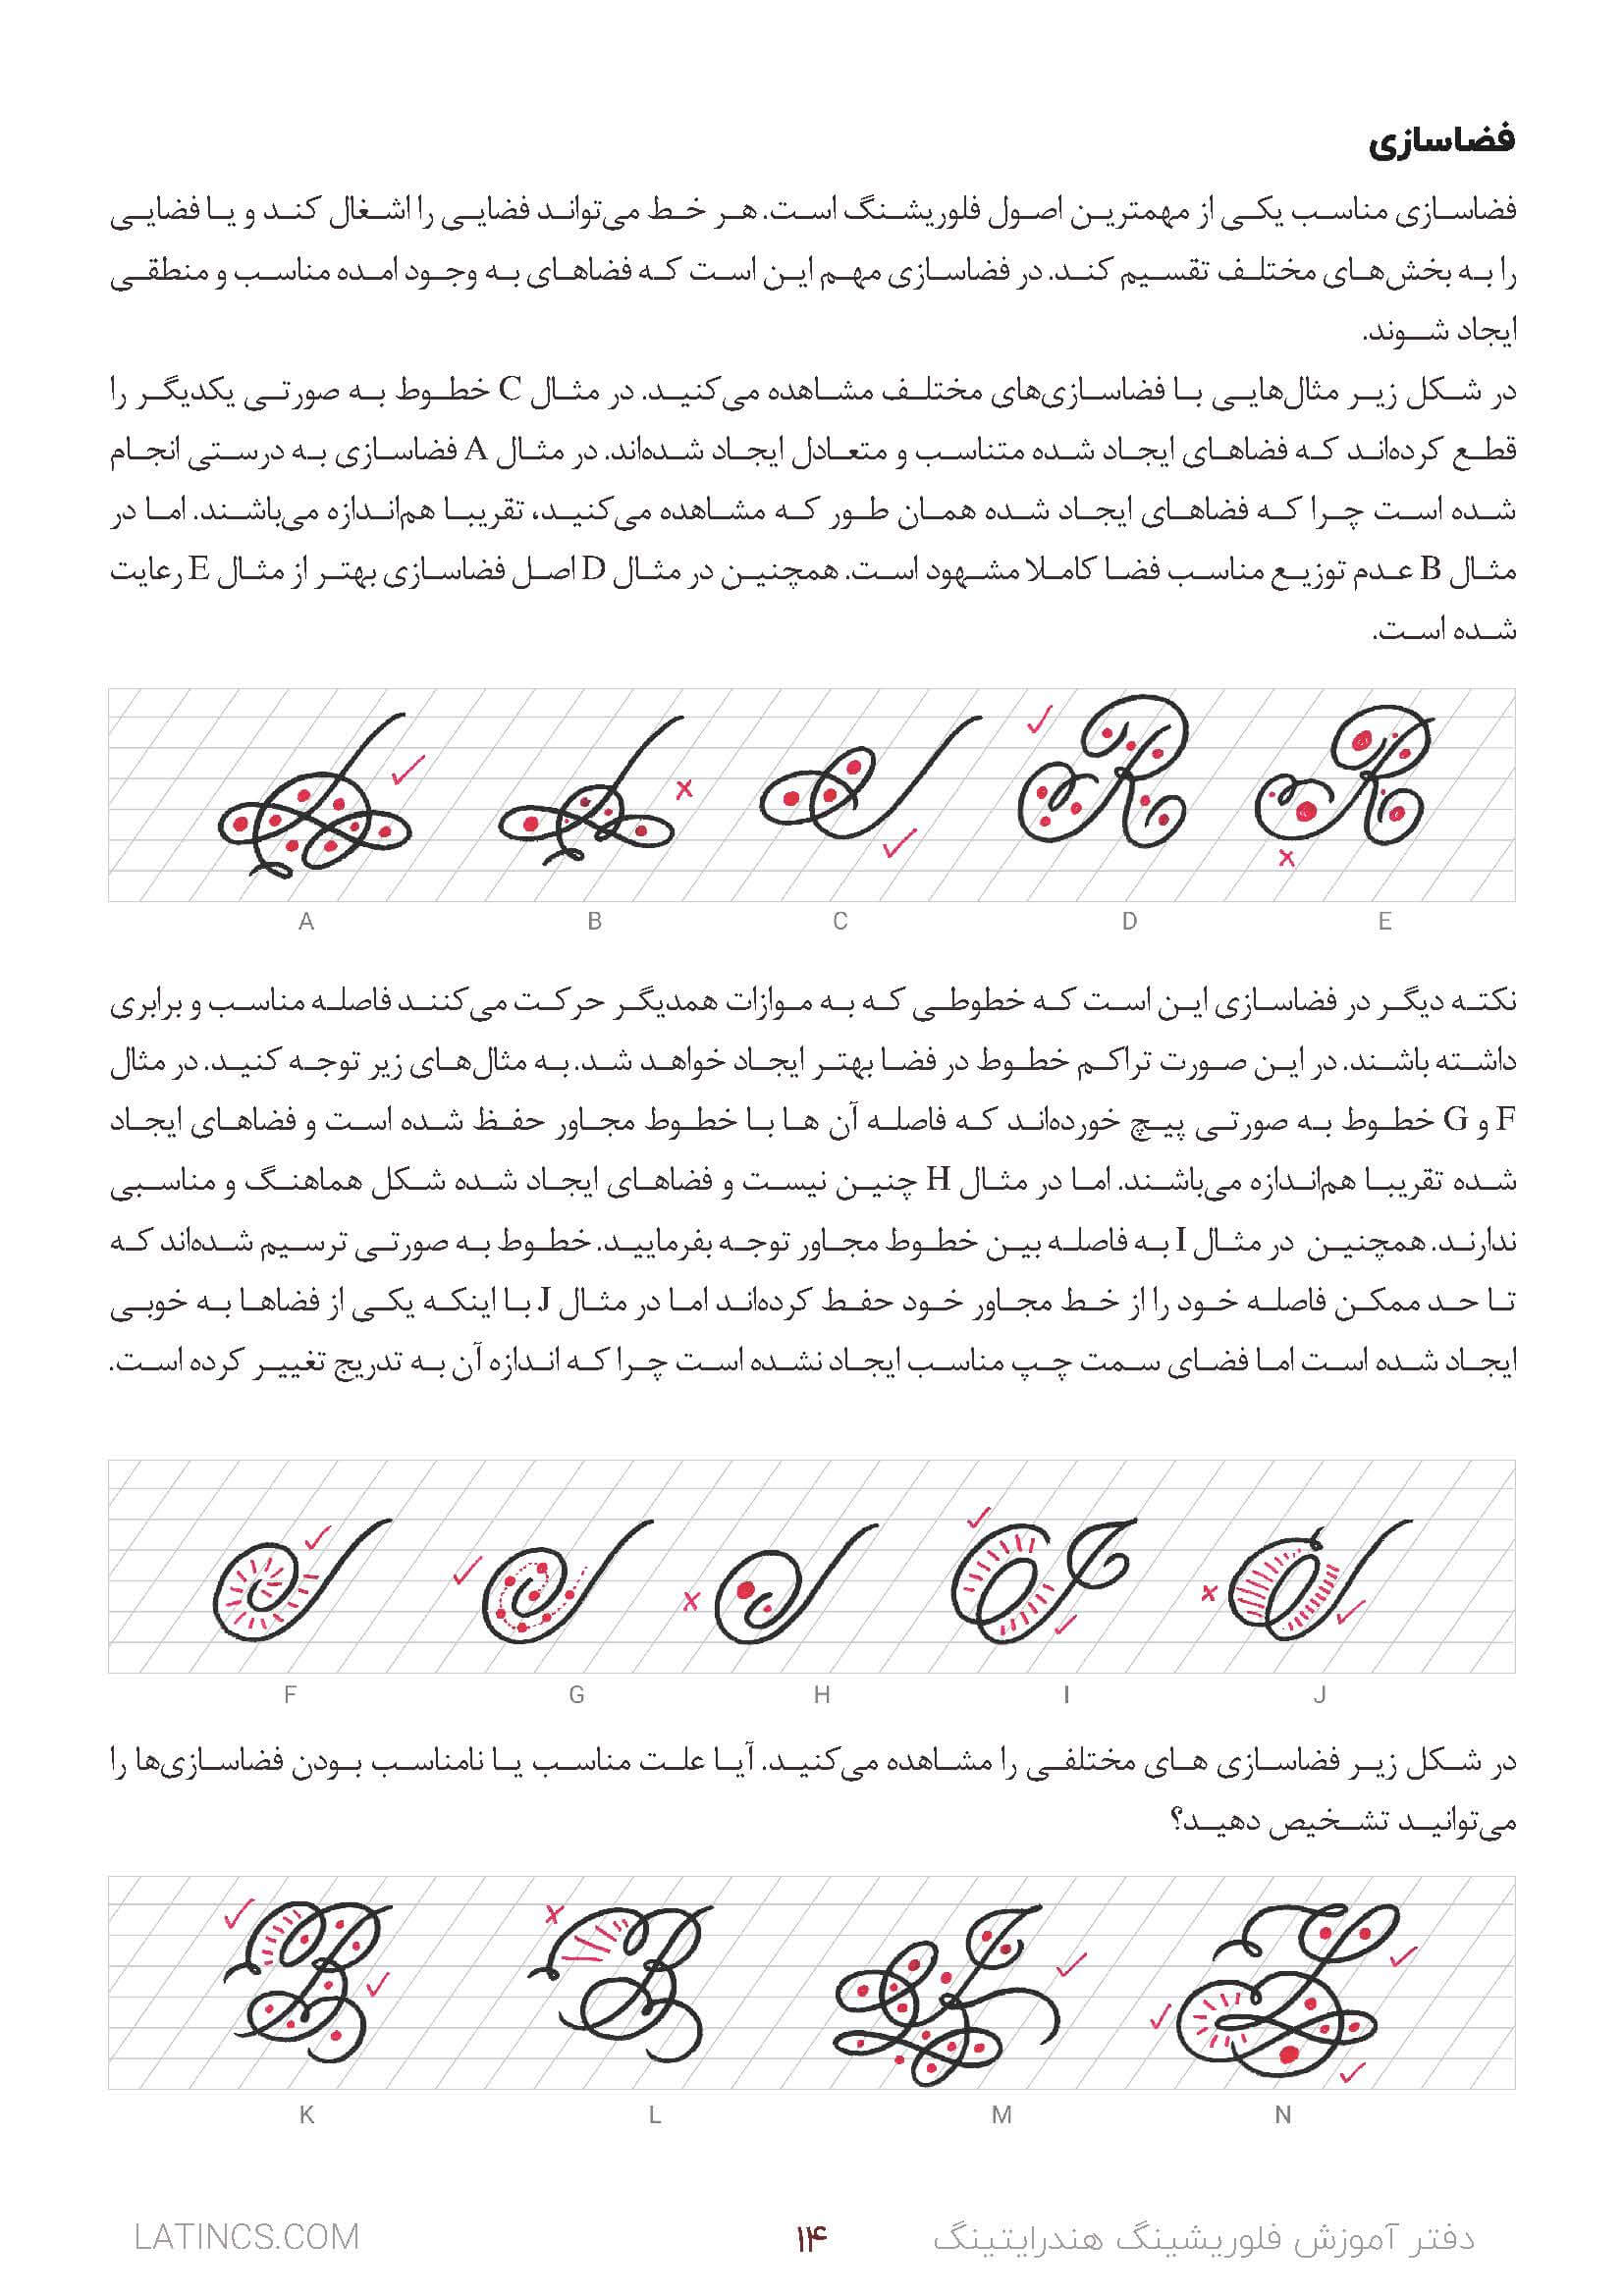 فضاسازی
فضاسازی مناسب یکی از مهمترین اصول فلوریشنگ است. هر خط می‌تواند فضایی را اشغال کند و یا فضایی
را به بخش‌های مختلف تقسیم کند. در فضاسازی مهم این است که فضاهای به وجود امده مناسب و منطقی
ایجاد شوند.
در شکل زیر مثال‌هایی با فضاسازی‌های مختلف مشاهده می‌کنید. در مثال C خطوط به صورتی یکدیگر را
قطع کرده‌اند که فضاهای ایجاد شده متناسب و متعادل ایجاد شده‌اند. در مثال A فضاسازی به درستی انجام
شده است چرا که فضاهای ایجاد شده همان طور که مشاهده می‌کنید، تقریبا هم‌اندازه می‌باشند. اما در
مثال B عدم توزیع مناسب فضا کاملا مشهود است. همچنین در مثال D اصل فضاسازی بهتر از مثال E رعایت
شده است.
A B C D E
نکته دیگر در فضاسازی این است که خطوطی که به موازات همدیگر حرکت می‌کنند فاصله مناسب و برابری
داشته باشند. در این صورت تراکم خطوط در فضا بهتر ایجاد خواهد شد. به مثال‌های زیر توجه کنید. در مثال
F و G خطوط به صورتی پیچ خورده‌اند که فاصله آن ها با خطوط مجاور حفظ شده است و فضاهای ایجاد
شده تقریبا هم‌اندازه می‌باشند. اما در مثال H چنین نیست و فضاهای ایجاد شده شکل هماهنگ و مناسبی
ندارند. همچنین در مثال I به فاصله بین خطوط مجاور توجه بفرمایید. خطوط به صورتی ترسیم شده‌اند که
تا حد ممکن فاصله خود را از خط مجاور خود حفظ کرده‌اند اما در مثال J با اینکه یکی از فضاها به خوبی
ایجاد شده است اما فضای سمت چپ مناسب ایجاد نشده است چرا که اندازه آن به تدریج تغییر کرده است.
F G H I J
در شکل زیر فضاسازی های مختلفی را مشاهده می‌کنید. آیا علت مناسب یا نامناسب بودن فضاسازی‌ها را
می‌توانید تشخیص دهید؟
K L M N
دفتر آموزش فلوریشینگ هندرایتینگ ۱۴ LATINCS.COM